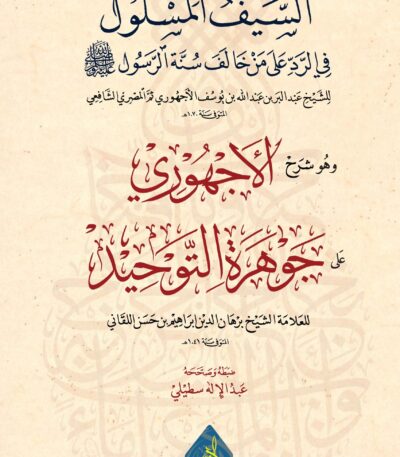 السَّيْفُ المَسْلُول
فِي الرَّدِّ عَلَى مَنْ خَالَفَ سُنَّةَ الرَّسُول ﷺ
لِلشَّيْخ عَبْد البَر بن عَبد الله بن يُوسُف الأجهُوري ثمَّ المصِري الشَّافِعي
المتوفى سنة ١٠٧٠هـ
وهُو شَرحُ الأَجْهُوْرِي
عَلى جَوْهَرَة التَّوْحِيْد
للعَلامَة الشَّيْخ بُرْهَان الدين ابراهِيم بن حَسَن اللقاني
المتوفى سنة ١٠٤١هـ
ضبَطه وَصَحَّحَهُ
عَبدُ الإِلَه سطيلي